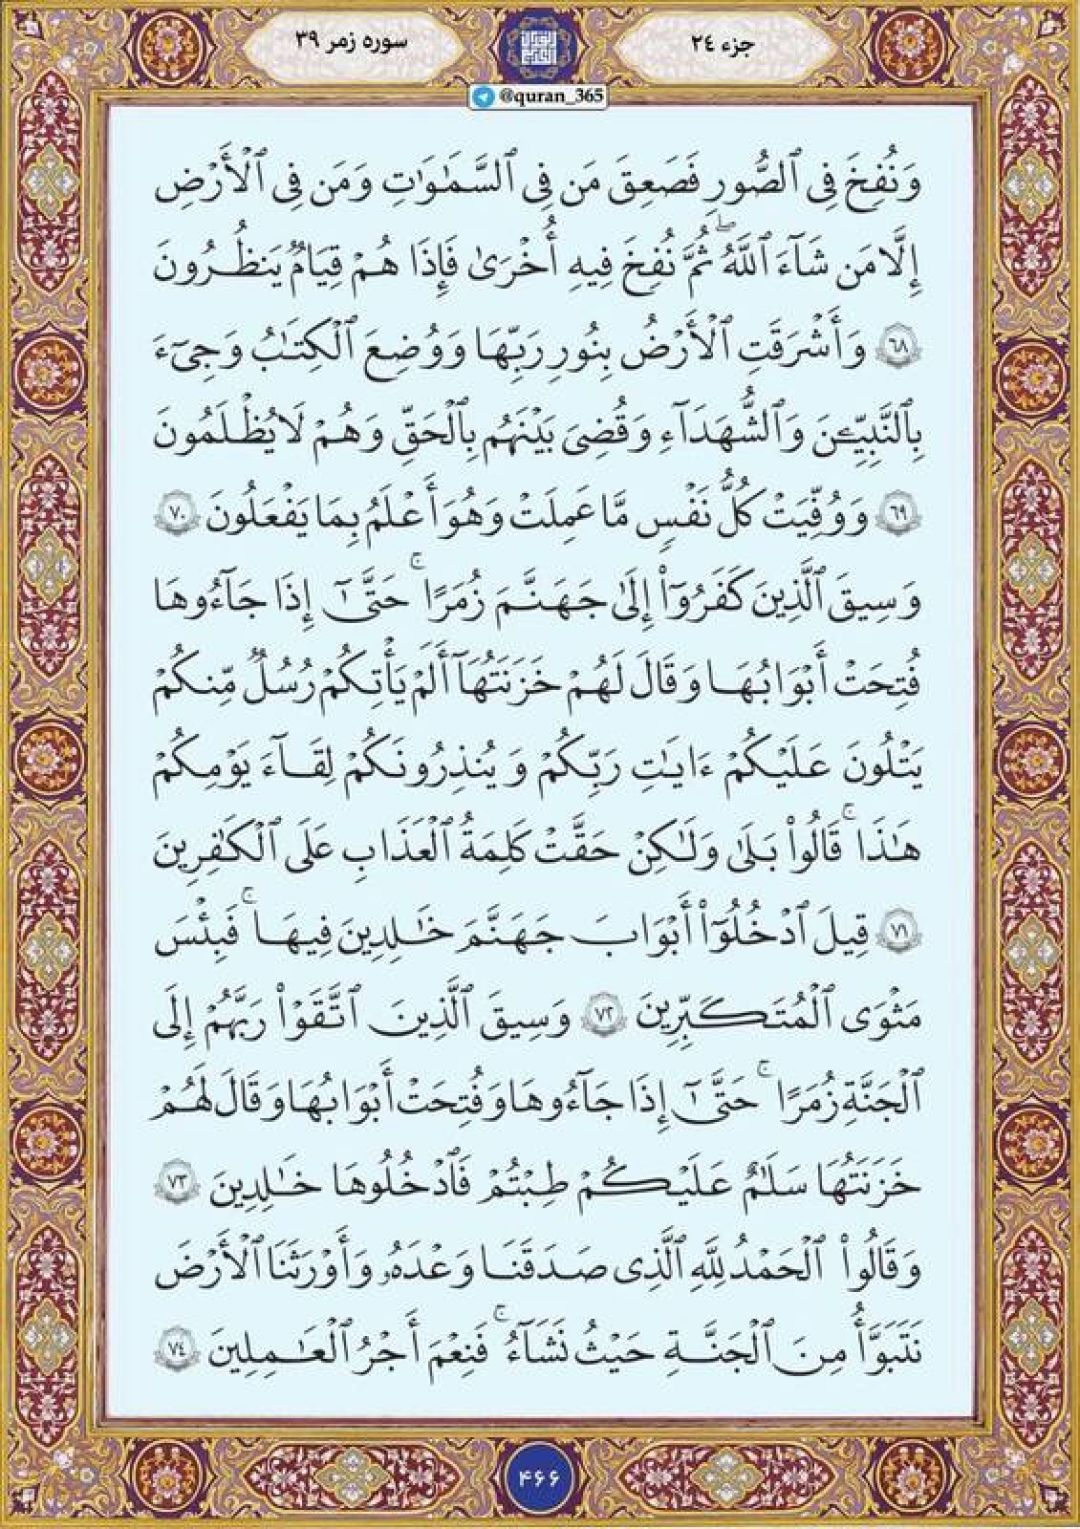 جزء ۲٤
سوره زمر ۳۹
@quran_365
وَنُفِخَ فِي ٱلصُّورِ فَصَعِقَ مَن فِي ٱلسَّمَٰوَٰتِ وَمَن فِي ٱلْأَرْضِ
إِلَّا مَن شَآءَ ٱللَّهُ ۖ ثُمَّ نُفِخَ فِيهِ أُخْرَىٰ فَإِذَا هُمْ قِيَامٌ يَنظُرُونَ
٦٨ وَأَشْرَقَتِ ٱلْأَرْضُ بِنُورِ رَبِّهَا وَوُضِعَ ٱلْكِتَٰبُ وَجِيءَ
بِٱلنَّبِيِّـۧنَ وَٱلشُّهَدَآءِ وَقُضِيَ بَيْنَهُم بِٱلْحَقِّ وَهُمْ لَا يُظْلَمُونَ
٦٩ وَوُفِّيَتْ كُلُّ نَفْسٍ مَّا عَمِلَتْ وَهُوَ أَعْلَمُ بِمَا يَفْعَلُونَ ٧٠
وَسِيقَ ٱلَّذِينَ كَفَرُوٓا۟ إِلَىٰ جَهَنَّمَ زُمَرًا ۚ حَتَّىٰٓ إِذَا جَآءُوهَا
فُتِحَتْ أَبْوَابُهَا وَقَالَ لَهُمْ خَزَنَتُهَآ أَلَمْ يَأْتِكُمْ رُسُلٌ مِّنكُمْ
يَتْلُونَ عَلَيْكُمْ ءَايَٰتِ رَبِّكُمْ وَيُنذِرُونَكُمْ لِقَآءَ يَوْمِكُمْ
هَٰذَا ۚ قَالُوا۟ بَلَىٰ وَلَٰكِنْ حَقَّتْ كَلِمَةُ ٱلْعَذَابِ عَلَى ٱلْكَٰفِرِينَ
٧١ قِيلَ ٱدْخُلُوٓا۟ أَبْوَابَ جَهَنَّمَ خَٰلِدِينَ فِيهَا ۚ فَبِئْسَ
مَثْوَى ٱلْمُتَكَبِّرِينَ ٧٢ وَسِيقَ ٱلَّذِينَ ٱتَّقَوْا۟ رَبَّهُمْ إِلَى
ٱلْجَنَّةِ زُمَرًا ۚ حَتَّىٰٓ إِذَا جَآءُوهَا وَفُتِحَتْ أَبْوَابُهَا وَقَالَ لَهُمْ
خَزَنَتُهَا سَلَٰمٌ عَلَيْكُمْ طِبْتُمْ فَٱدْخُلُوهَا خَٰلِدِينَ ٧٣
وَقَالُوا۟ ٱلْحَمْدُ لِلَّهِ ٱلَّذِي صَدَقَنَا وَعْدَهُۥ وَأَوْرَثَنَا ٱلْأَرْضَ
نَتَبَوَّأُ مِنَ ٱلْجَنَّةِ حَيْثُ نَشَآءُ ۚ فَنِعْمَ أَجْرُ ٱلْعَٰمِلِينَ ٧٤
۴۶۶